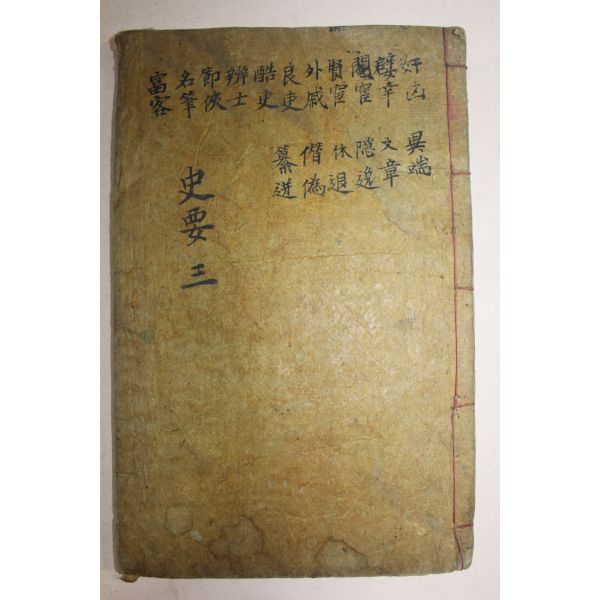 奸凶 異端
嬖幸 文章
閹宦 隱逸
賢宦 休退
外戚 僭偽
良吏 纂逆
酷吏
辨士
節俠
名筆
富客
史要 三